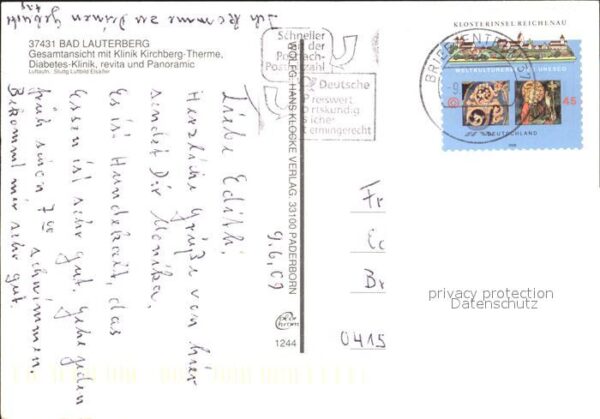 Ich komme zu Deinem Geburts
tag
37431 BAD LAUTERBERG
Gesamtansicht mit Klinik Kirchberg-Therme,
Diabetes-Klinik, revita und Panoramic
Luftaufn. Stuttg Luftbild Elsäßer
Liebe Edith!
Herzliche Grüße von hier
sendet Dir Monika.
Es ist Hundekalt, das
Essen ist sehr gut. Gehe jeden
früh schon 7⁰⁰ schwimmen,
Bekommt mir sehr gut.
9.6.09
WOLFG. HANS KLOCKE VERLAG 33100 PADERBORN
color
chrom
1244
Schneller
an der
Postfach-
Postleitzahl
Deutsche
Preiswert
Ortskundig
termingerecht
BRIEFZENTRUM
KLOSTERINSEL REICHENAU
WELTKULTURERBE DER UNESCO
45
DEUTSCHLAND
Fr
Ed
Br
0415
privacy protection
Datenschutz